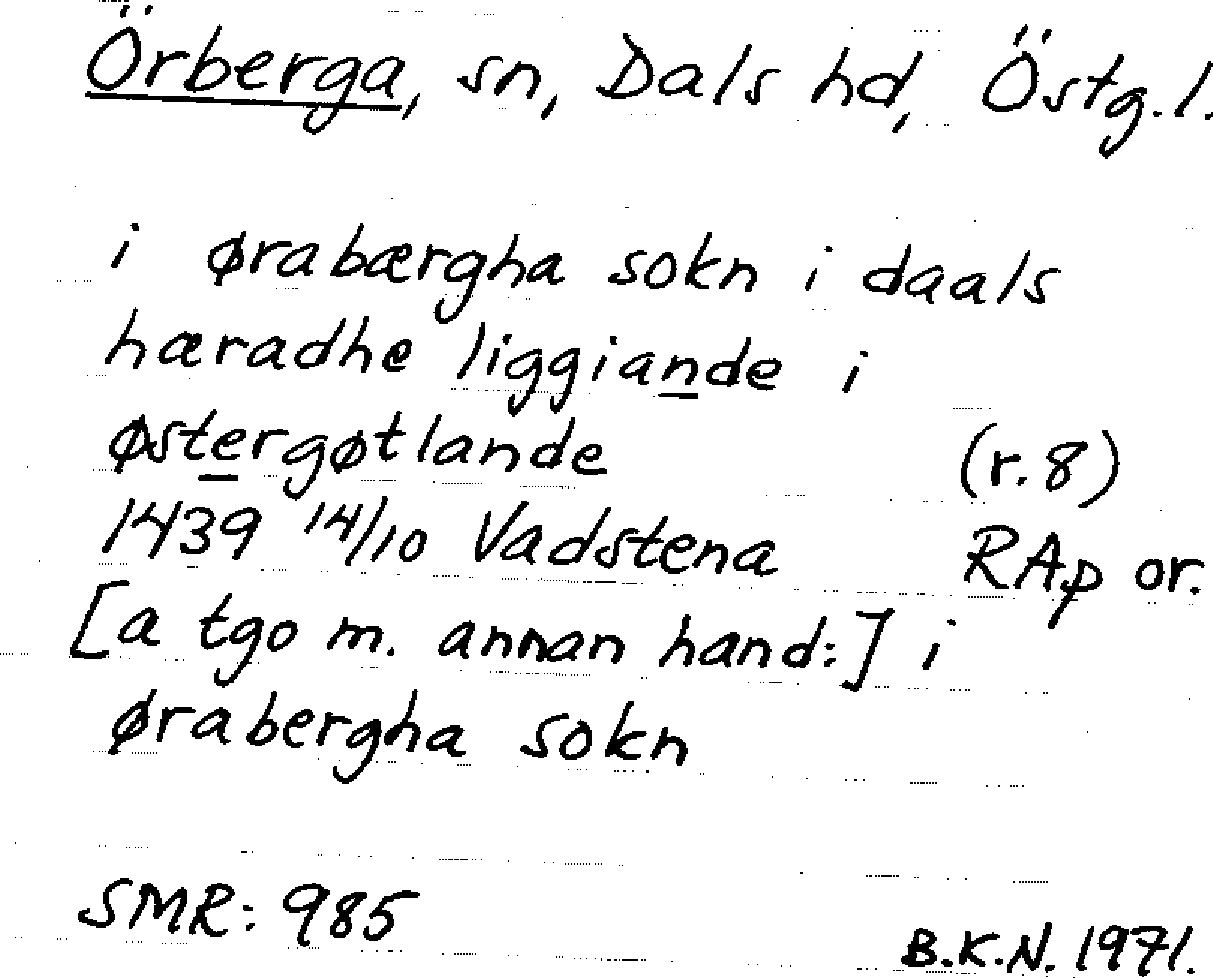 Örberga, sn, Dals hd, Östg.l.
i ørabærgha sokn i daals
hæradhe liggiande i
østergøtlande (r.8)
1439 14/10 Vadstena RAp or.
[a tgo m. annan hand:] i
ørabergha sokn
SMR: 985
B.K.N. 1971.